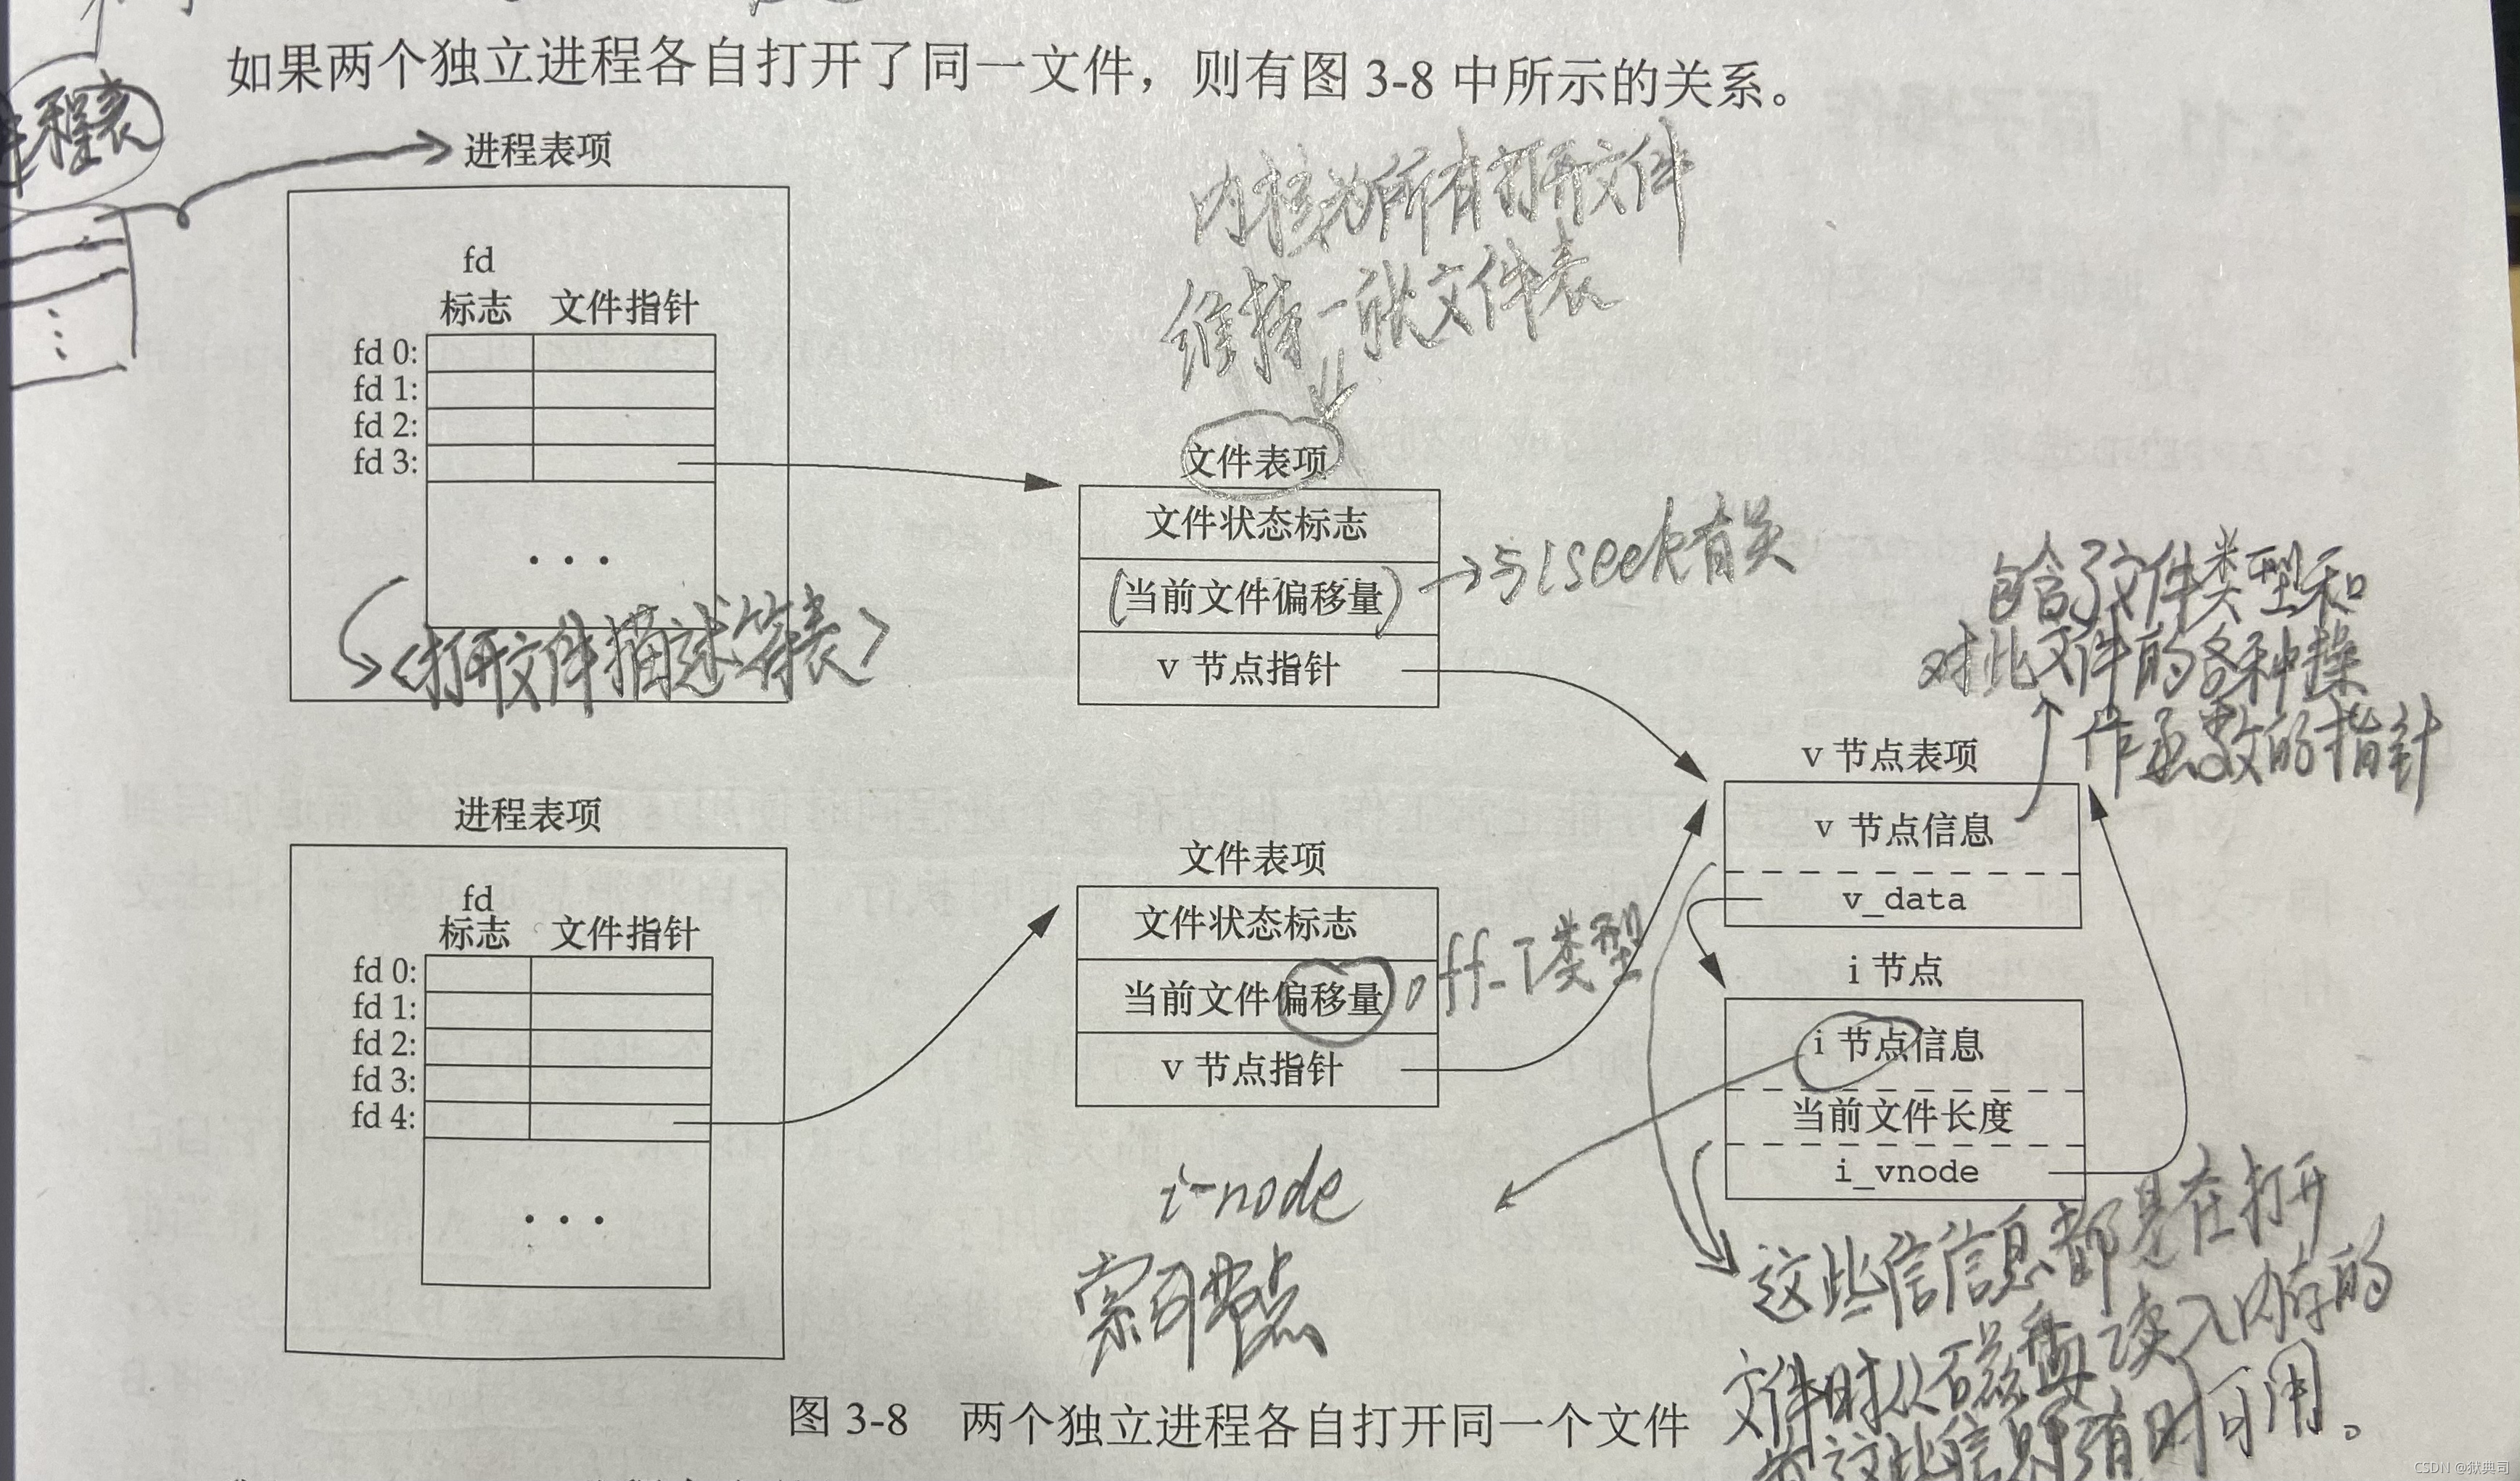 如果两个独立进程各自打开了同一文件，则有图 3-8 中所示的关系。
程表
进程表项
内核为所有打开文件
维持一张文件表
fd
标志 文件指针
fd 0:
fd 1:
fd 2:
fd 3:
...
<打开文件描述符表>
文件表项
文件状态标志
(当前文件偏移量) →与lseek有关
v 节点指针
包含了文件类型和
对此文件的各种操
作函数的指针
v 节点表项
v 节点信息
v_data
i 节点
i 节点信息
当前文件长度
i_vnode
进程表项
fd
标志 文件指针
fd 0:
fd 1:
fd 2:
fd 3:
fd 4:
...
文件表项
文件状态标志
当前文件偏移量 off_T类型
v 节点指针
i-node
索引节点
这些信信息都是在打开
文件时从磁盘读入内存的
这些信息随时可用。
图 3-8 两个独立进程各自打开同一个文件
CSDN @狱典司